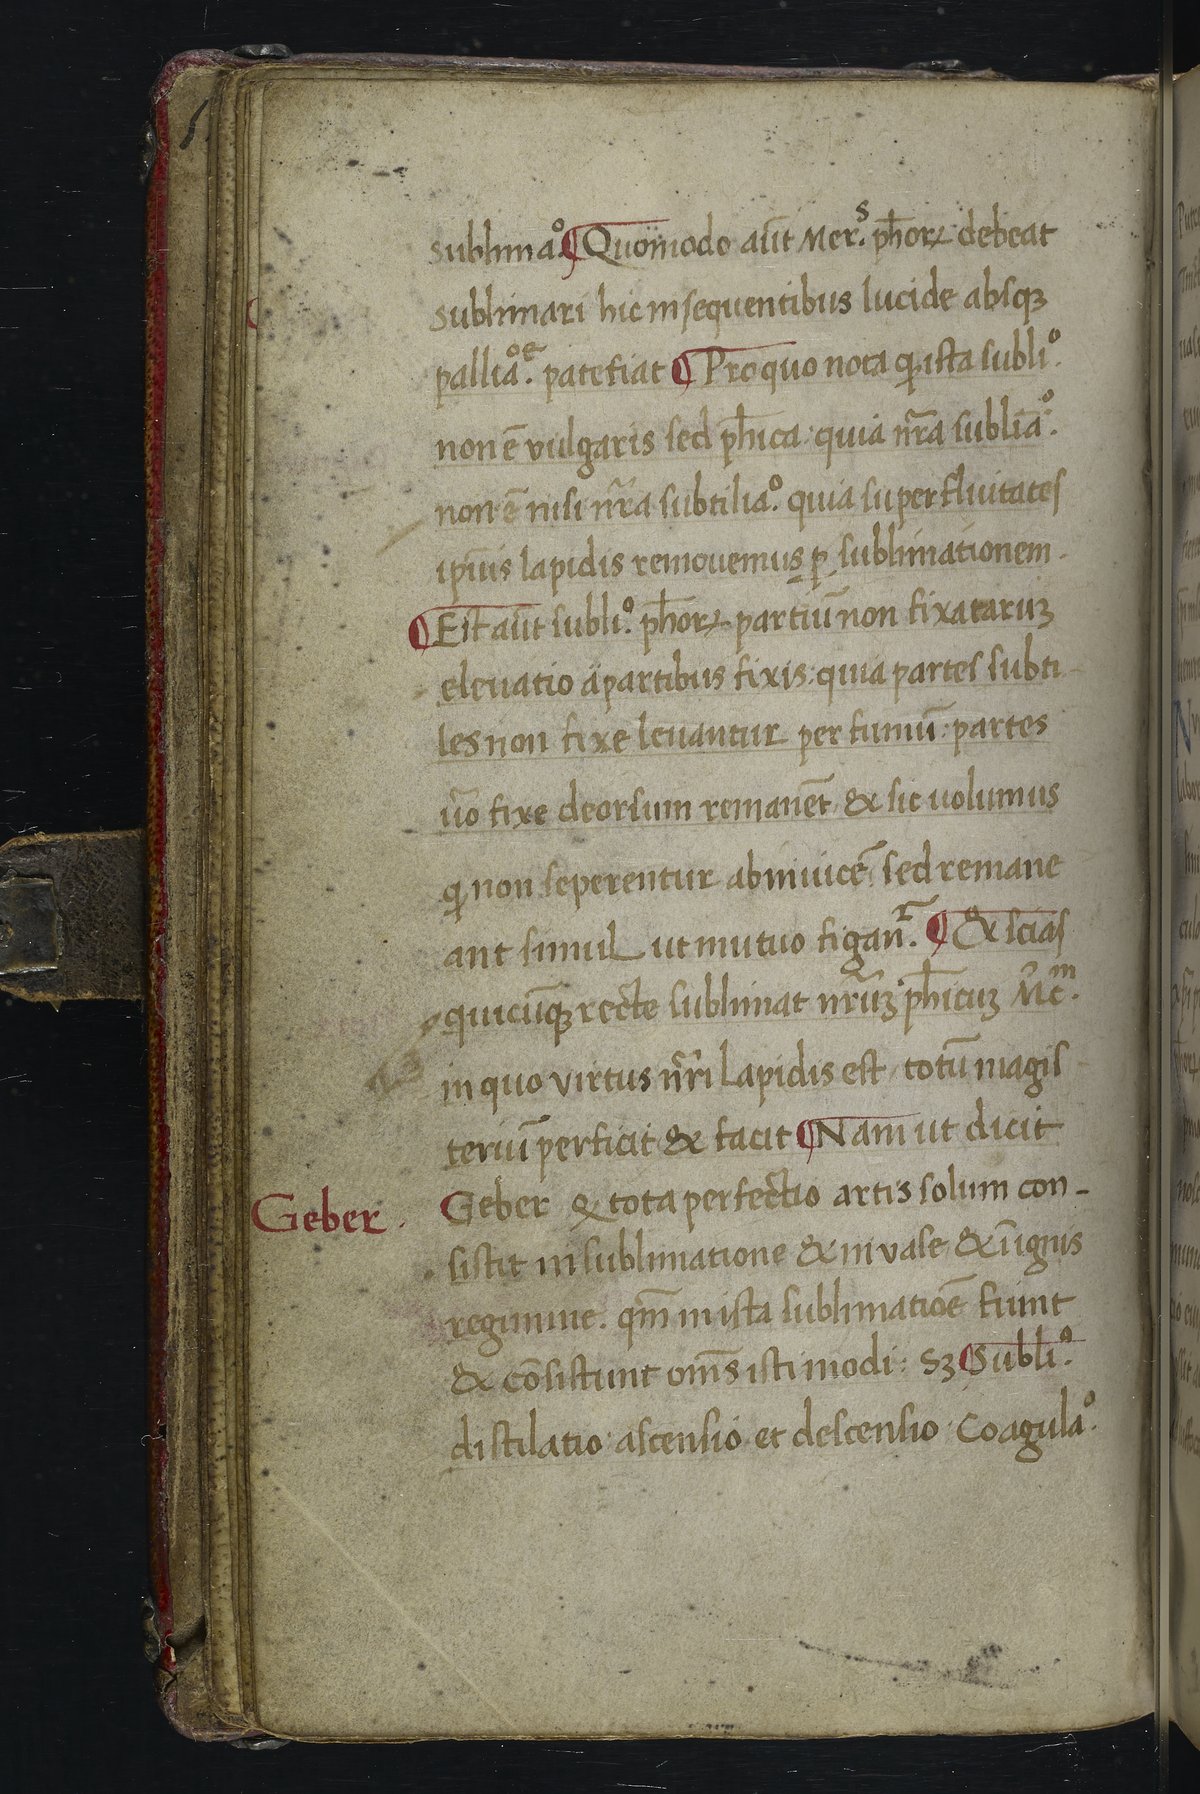 sublima⁰. ¶ Quomodo aūt Mer.ˢ ph̄oꝝ debeat
sublimari hic in sequentibus lucide absqꝫ
pallia⁰.ᵉ patefiat ¶ Pro quo nota ꝙ ista subli⁰.
non ē vulgaris sed ph̄ica: quia nr̄a subliā⁰.
non ē nisi nr̄a subtilia⁰. quia superfluitates
ipīus lapidis remouemus ꝑ sublimationem.
¶ Est aūt subli⁰. ph̄oꝝ partiū non fixataruꝫ
eleuatio a partibus fixis: quia partes subti
les non fixe leuantur per fumū: partes
ūo fixe deorsum remanēt & sic uolumus
ꝙ non seperentur abinuicē sed remane
ant simul ut mutuo figanͬ. ¶ & scias
quicūqꝫ recte sublimat nr̄uꝫ ph̄icuꝫ M̄c.ᵐ
in quo virtus nr̄i lapidis est totū magis
teriū perficit & facit ¶ Nam ut dicit
Geber .
Geber ꝙ tota perfectio artis solum con-
sistit in sublimatione & in vase & ī ignis
regimine. qm̄ in ista sublimatiōe fiunt
& cōsistunt om̄s isti modi: sꝫ ¶ Subli⁰.
distilatio ascensio et descensio Coagula⁰.